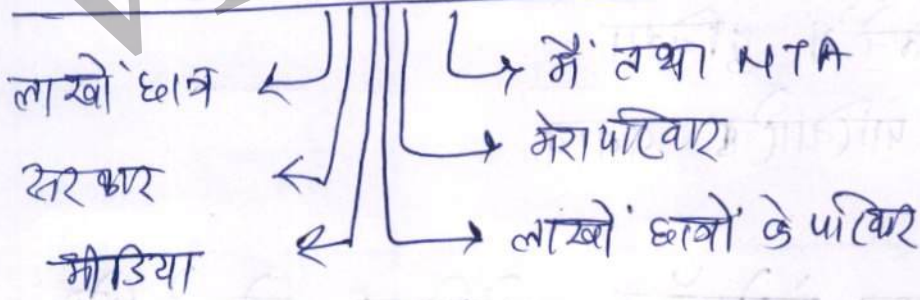 लाखों छात्र
सरकार
मीडिया
मैं तथा NTA
मेरा परिवार
लाखों छात्रों के परिवार